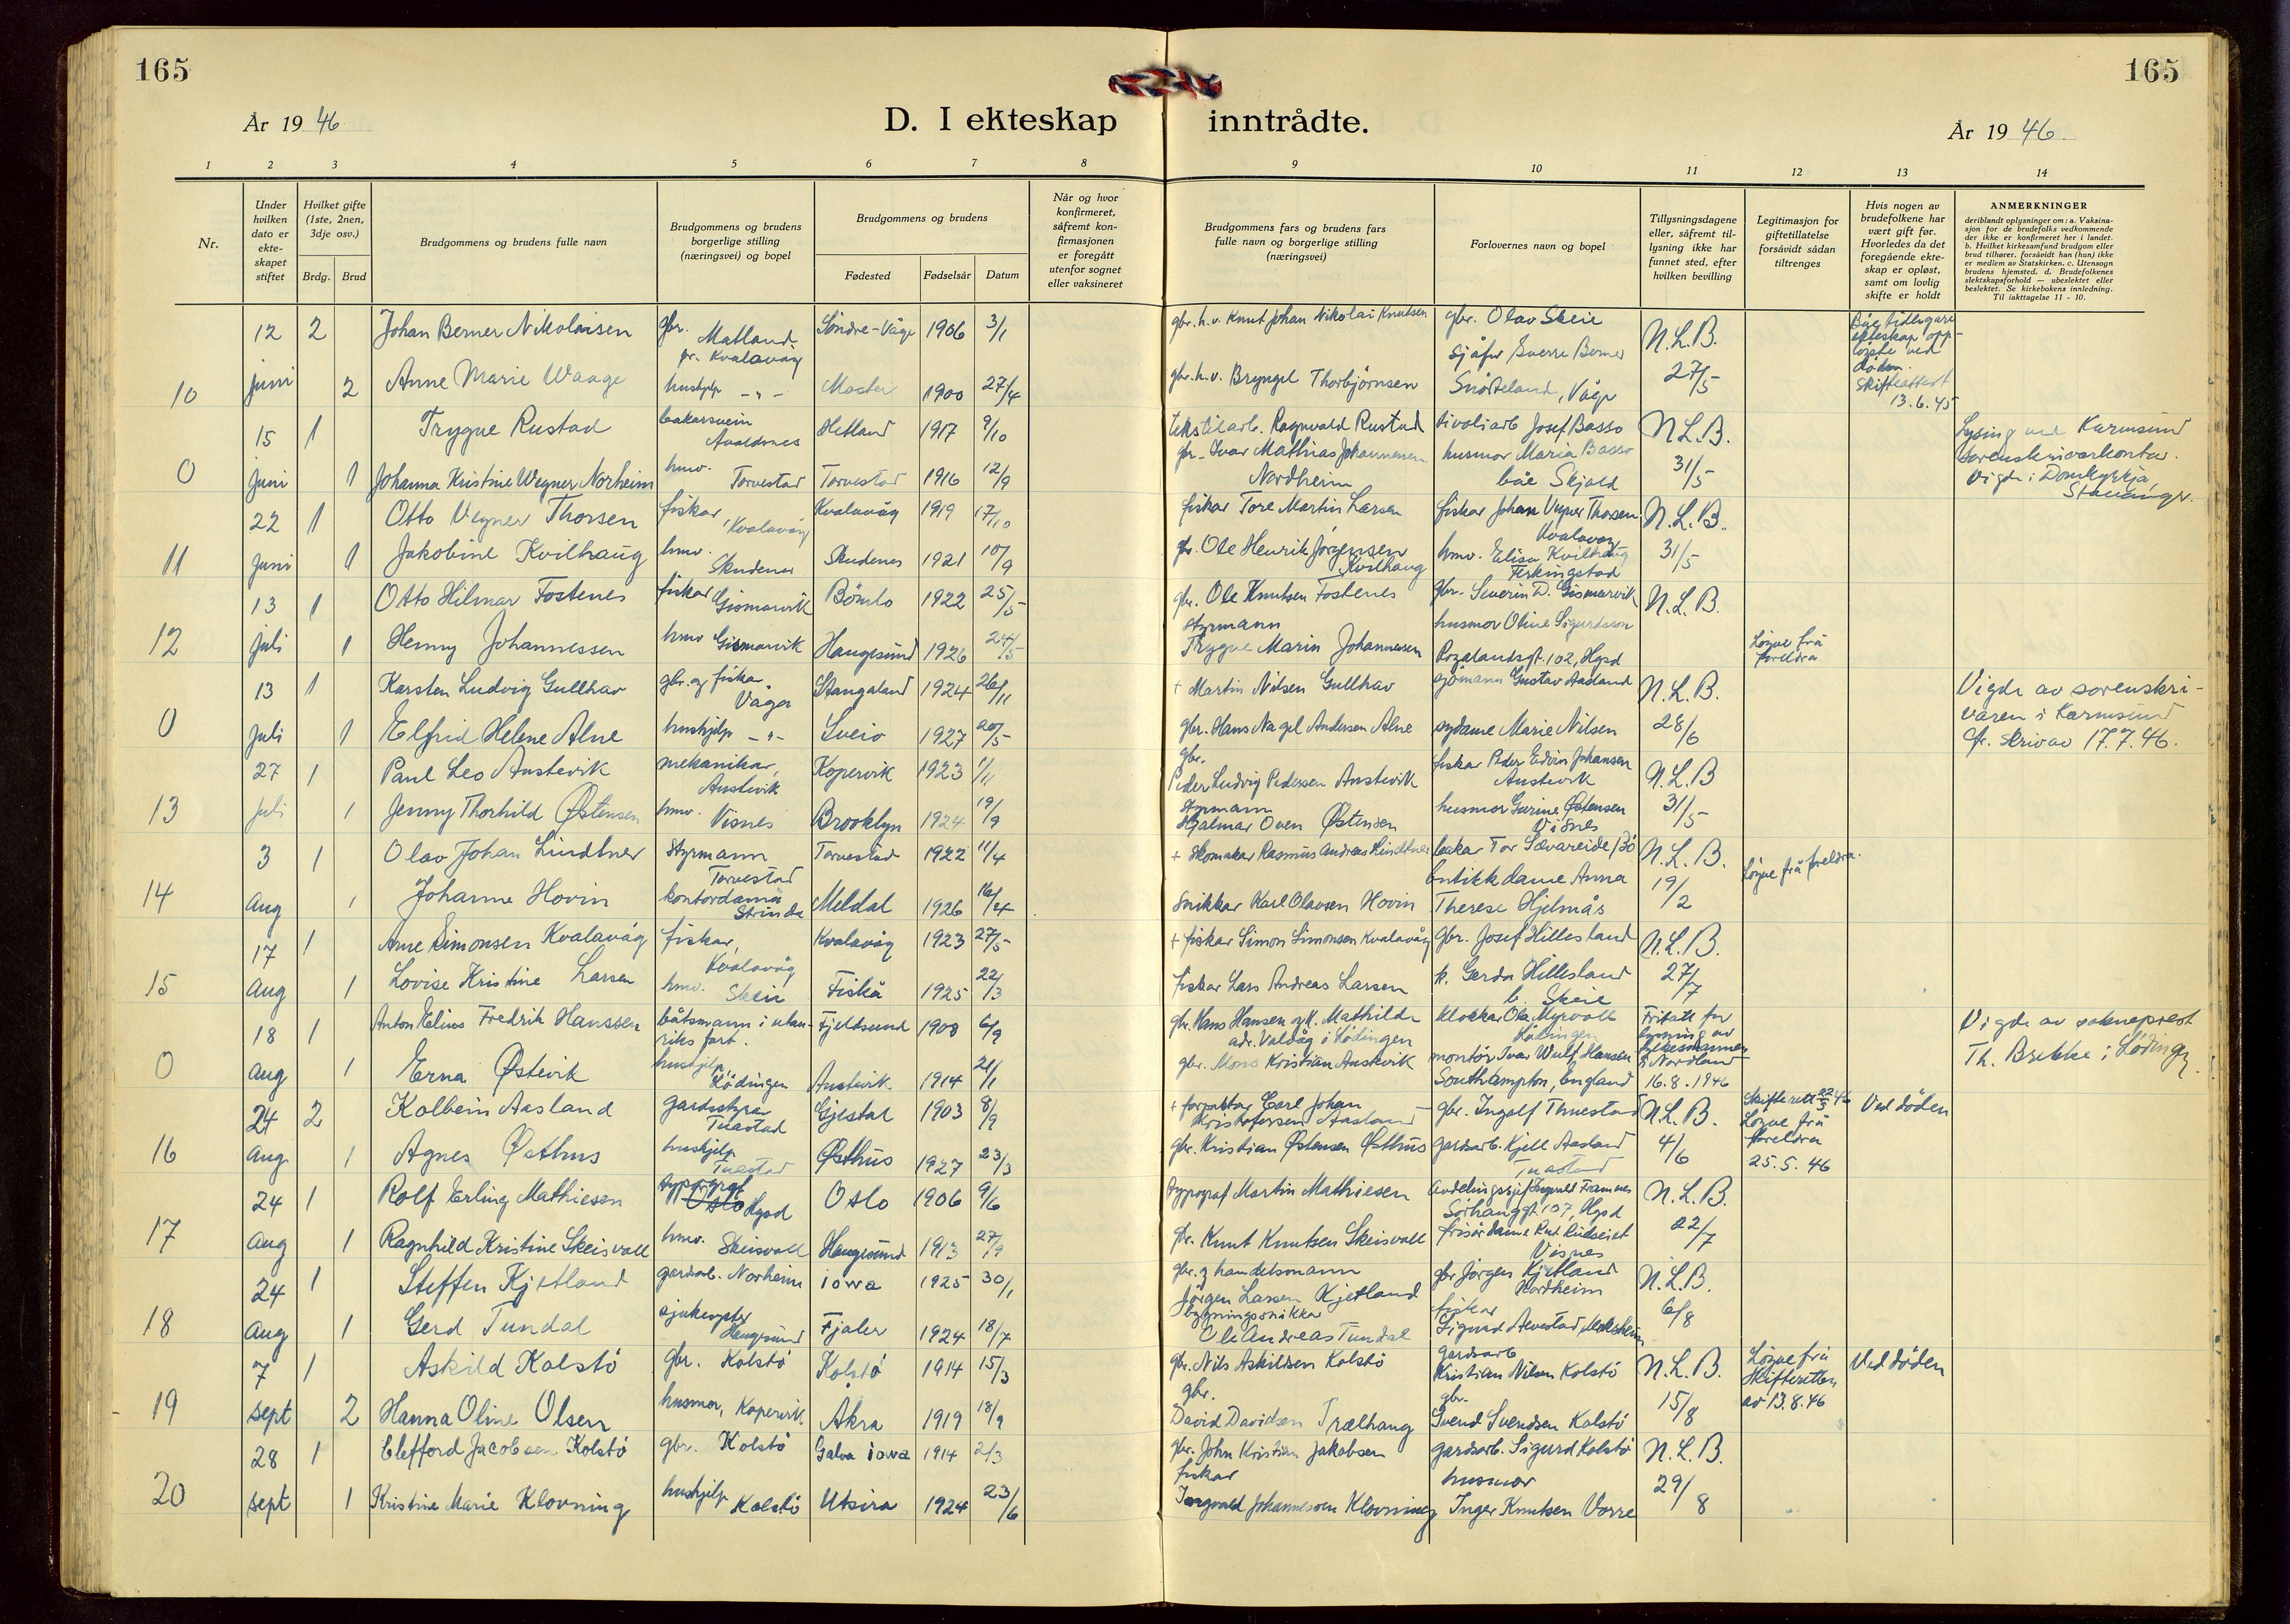 165
165
År 19 46
D. I ekteskap inntrådte.
År 19 46.
1 2 3 4 5 6 7 8 9 10 11 12 13 14
Nr.
Under hvilken dato er ekte-skapet stiftet
Hvilket gifte (1ste, 2nen, 3dje osv.)
Brdg. Brud
Brudgommens og brudens fulle navn
Brudgommens og brudens borgerlige stilling (næringsvei) og bopel
Brudgommens og brudens
Fødested Fødselsår Datum
Når og hvor konfirmeret, såfremt kon-firmasjonen er foregått utenfor sognet eller vaksineret
Brudgommens fars og brudens fars fulle navn og borgerlige stilling (næringsvei)
Forlovernes navn og bopel
Tillysningsdagene eller, såfremt til-lysning ikke har funnet sted, efter hvilken bevilling
Legitimasjon for giftetillatelse forsåvidt sådan tiltrenges
Hvis nogen av brudefolkene har vært gift før. Hvorledes da det foregående ekte-skap er opløst, samt om lovlig skifte er holdt
ANMERKNINGER
deriblandt oplysninger om: a. Vaksina-sjon for de brudefolks vedkommende der ikke er konfirmeret her i landet. b. Hvilket kirkesamfund brudgom eller brud tilhører, forsåvidt han (hun) ikke er medlem av Statskirken. c. Utensogn brudens hjemsted. d. Brudefolkenes slektskapsforhold — ubeslektet eller beslektet. Se kirkebokens innledning. Til iakttagelse 11 - 10.
12 2 Johan Berner Nikolaisen gbr. Matland pr. Kvalavåg Söndre-Våge 1906 3/1 gbr. h.v. Knut Johan Nikolai Knutsen gbr. Olav Skeie N.L.B. Båe tidlegare ekteskap opp-löyste ved döden. Skifteattest 13.6.45
10 juni 2 Anne Marie Waage hushjelp -"- Moster 1900 27/4 gbr. h.v. Bryngel Thorbjörnsen sjåfør Sverre Berner Våge 27/5
15 1 Trygve Rustad bakarsvein Avaldsnes Hetland 1917 9/10 tekstilarb. Ragnvald Rustad tivoliarb Josef Basso N.L.B. Lysing ved Karmsund Sorenskrivarkontor. Vigde i Domkyrkja, Stavanger.
0 juni 1 Johanna Kristine Wegner Norheim hmv. Torvestad Torvestad 1916 12/9 gbr. Ivar Mathias Johannessen Nordheim husmor Maria Basso båe Skjold 31/5
22 1 Otto Vegner Thorsen fiskar, Kvalavåg Kvalavåg 1919 17/10 fiskar Tore Martin Larsen fiskar Johan Vegner Thorsen Kvalavåg N.L.B.
11 juni 1 Jakobine Kvilhaug hmv. Skudenes Skudenes 1921 10/9 gbr. Ole Henrik Jörgensen Kvilhaug hmv. Elisa Kvilhaug Ferkingstad 31/5
13 1 Otto Hilmar Fostenes fiskar Gismarvik Bömlo 1922 25/5 gbr. Ole Knutsen Fostenes gbr. Severin D. Gismarvik N.L.B.
12 juli 1 Henny Johannessen hmv Gismarvik Haugesund 1926 24/5 styrmann Trygve Marin Johannessen husmor Oline Sigurdsson Rogalandsgt. 102, Hgsd Løyve frå foreldra
13 1 Karsten Ludvig Gullhav gbr. og fiskar Våga Stangaland 1924 26/11 + Martin Nilsen Gullhav sjömann Gustav Aadland N.L.B. Vigde av sorenskri-varen i Karmsund fr. skriv av 17.7.46.
0 Juli 1 Elfrid Helene Alne hushjelp -"- Sveio 1927 20/5 gbr. Hans Nagel Andersen Alne sydame Marie Nilsen 28/6
27 1 Paul Leo Austevik mekanikar, Austevik Kopervik 1923 1/1 gbr. Peder Ludvig Pedersen Austevik fiskar Peder Edvin Johansen Austevik N.L.B
13 Juli 1 Jenny Thorhild Østensen hmv. Visnes Brooklyn 1924 19/9 styrmann Hjalmar Oven Østensen husmor Gurine Østensen Visnes 31/5
3 1 Olav Johan Lindtner Styrmann Torvestad Torvestad 1922 11/4 + Skomakar Rasmus Andreas Lindtner bakar Tor Sævareide, Bö N.L.B. Løyve frå foreldra.
14 aug 1 Johanne Hovin kontordame Strinda Meldal 1926 16/4 Snikkar Karl Olavsen Hovin butikkdame Anna Therese Hjelmås 19/2
17 1 Arne Simonsen Kvalavåg fiskar, Kvalavåg Kvalavåg 1923 27/5 + fiskar Simon Simonsen Kvalavåg gbr. Josef Hillesland N.L.B.
15 aug 1 Lovise Kristine Larsen hmv. Skeie Fiskå 1925 22/3 fiskar Lars Andreas Larsen k. Gerda Hillesland b. Skeie 27/7
18 1 Anton Elius Fredrik Hanssen båtsmann i utan-riks fart. Fjeldsund 1908 6/9 gbr. Hans Hansen og k. Mathilde adr. Valdåg i Lödingen klokkar Ola Myrvoll Lödingen Fritatt for lysning av fylkesmannen i Nordland Vigde av sokneprest Th. Brekke i Lödingen.
0 aug 1 Erna Østevik hushjelp, Lödingen Austevik 1914 21/1 gbr. Mons Kristian Austevik montör Ivar Wulf Hansen Southampton, England 16.8.1946
24 2 Kolbein Aasland gardsstyrar Tuastad Gjestal 1903 8/9 + forpaktar Carl Johan Kristofersen Aasland gbr. Ingolf Thuestad N.L.B. Skifterett 22/5 46 Løyve frå foreldra 25.5.46 Ved döden
16 aug. 1 Agnes Østhus hushjelp Tuastad Østhus 1927 23/3 gbr. Kristian Østensen Østhus gardsarb. Kjell Aasland Tuastad 4/6
24 1 Rolf Erling Mathiesen typograf Oslo Hgsd Oslo 1906 9/6 typograf Martin Mathiesen avdelingssjef Ingvald Framnes Sörhauggt. 107, Hgsd N.L.B.
17 aug 1 Ragnhild Kristine Skeisvoll hmv. Skeisvoll Haugesund 1913 27/9 gbr. Knut Knutsen Skeisvoll frisördame Visnes 22/7
24 1 Steffen Kjetland gardarb. Norheim iowa 1925 30/1 gbr. og handelsmann Jörgen Larsen Kjetland gbr Jörgen Kjetland Nordheim N.L.B.
18 aug 1 Gerd Tundal sjukesyster Haugesund Fjaler 1924 18/7 bygningssnikkar Ole Andreas Tundal fiskar Sigurd 6/8
7 1 Askild Kolstö gbr. Kolstö Kolstö 1914 15/3 gbr. Nils Askildsen Kolstö gardsarb Kristian Nilsen Kolstö N.L.B. Løyve frå Skifteretten av 13.8.46 Ved döden
19 sept 2 Hanna Oline Olsen husmor, Kopervik. Åkra 1919 18/9 gbr. David Davidsen Trælhaug gbr. Svend Svendsen Kolstö 15/8
28 1 Clefford Jacobsen Kolstö gbr. Kolstö Galva iowa 1914 2/3 gbr. John Kristian Jakobsen gardsarb. Sigurd Kolstö N.L.B.
20 sept 1 Kristine Marie Klovning hushjelp Kolstö Utsira 1924 23/6 fiskar Ingvald Johannessen Klovning husmor Inger Knutsen Vorre 29/8